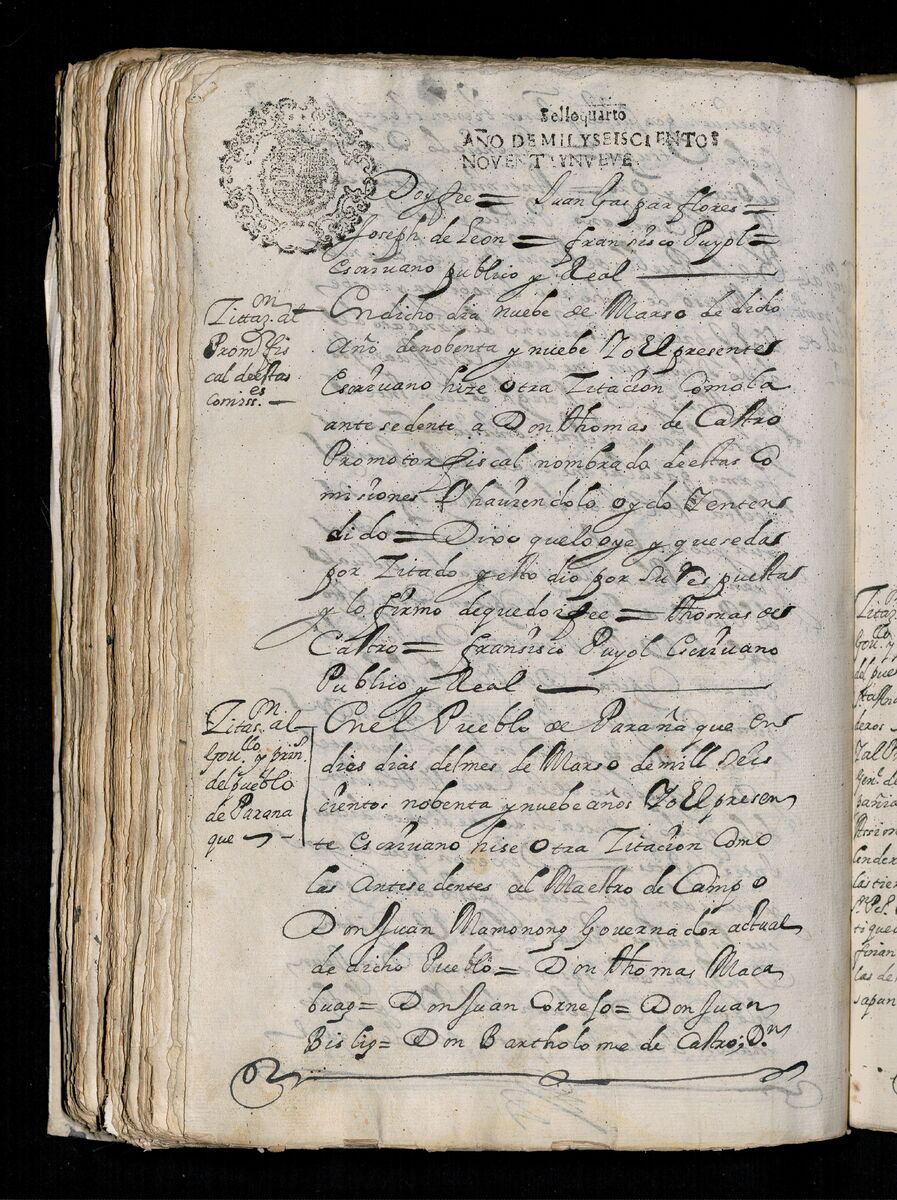 Selloquarto
AÑO DE MIL Y SEISCIENTOS
NOVENTAYNVEVE.
Doy fee = Juan Gaspar flores =
Joseph de Leon = fransisco Puyol =
Escriuano publico y Real
Zittaz.m al
Prom.r fis
cal de estas
comiss.es
En dicho dia nuebe de Marso de dicho
Año denobenta y nuebe Yo El presente
Escriuano hize otra Zitacion Como la
antesedente a Don thomas de Castro
Promotor fiscal nombrado de estas Co
misiones Y hauiendolo oydo Y enten
dido = Dixo quelo oye y que se da
por Zitado y esto dio por su Respuesta
y lo firmo de que doi fee = thomas de
Castro = fransisco Puyol Escriuano
Publico y Real
Zitas.m al
Gou.llo y prin.s
del pueblo
de Parana
que
En el Pueblo de Parañaque en
dies dias del mes de Marso de mill seis
cientos nobenta y nuebe años Yo El presen
te Escriuano hise otra Zitacion Como
las Antesedentes al Maestro de Campo
Don Juan Mamonong Governador actual
de dicho Pueblo = Don thomas Maca
buag = Don Juan Cornejo = Don Juan
Bislig = Don Bartholome de Castro; D.n